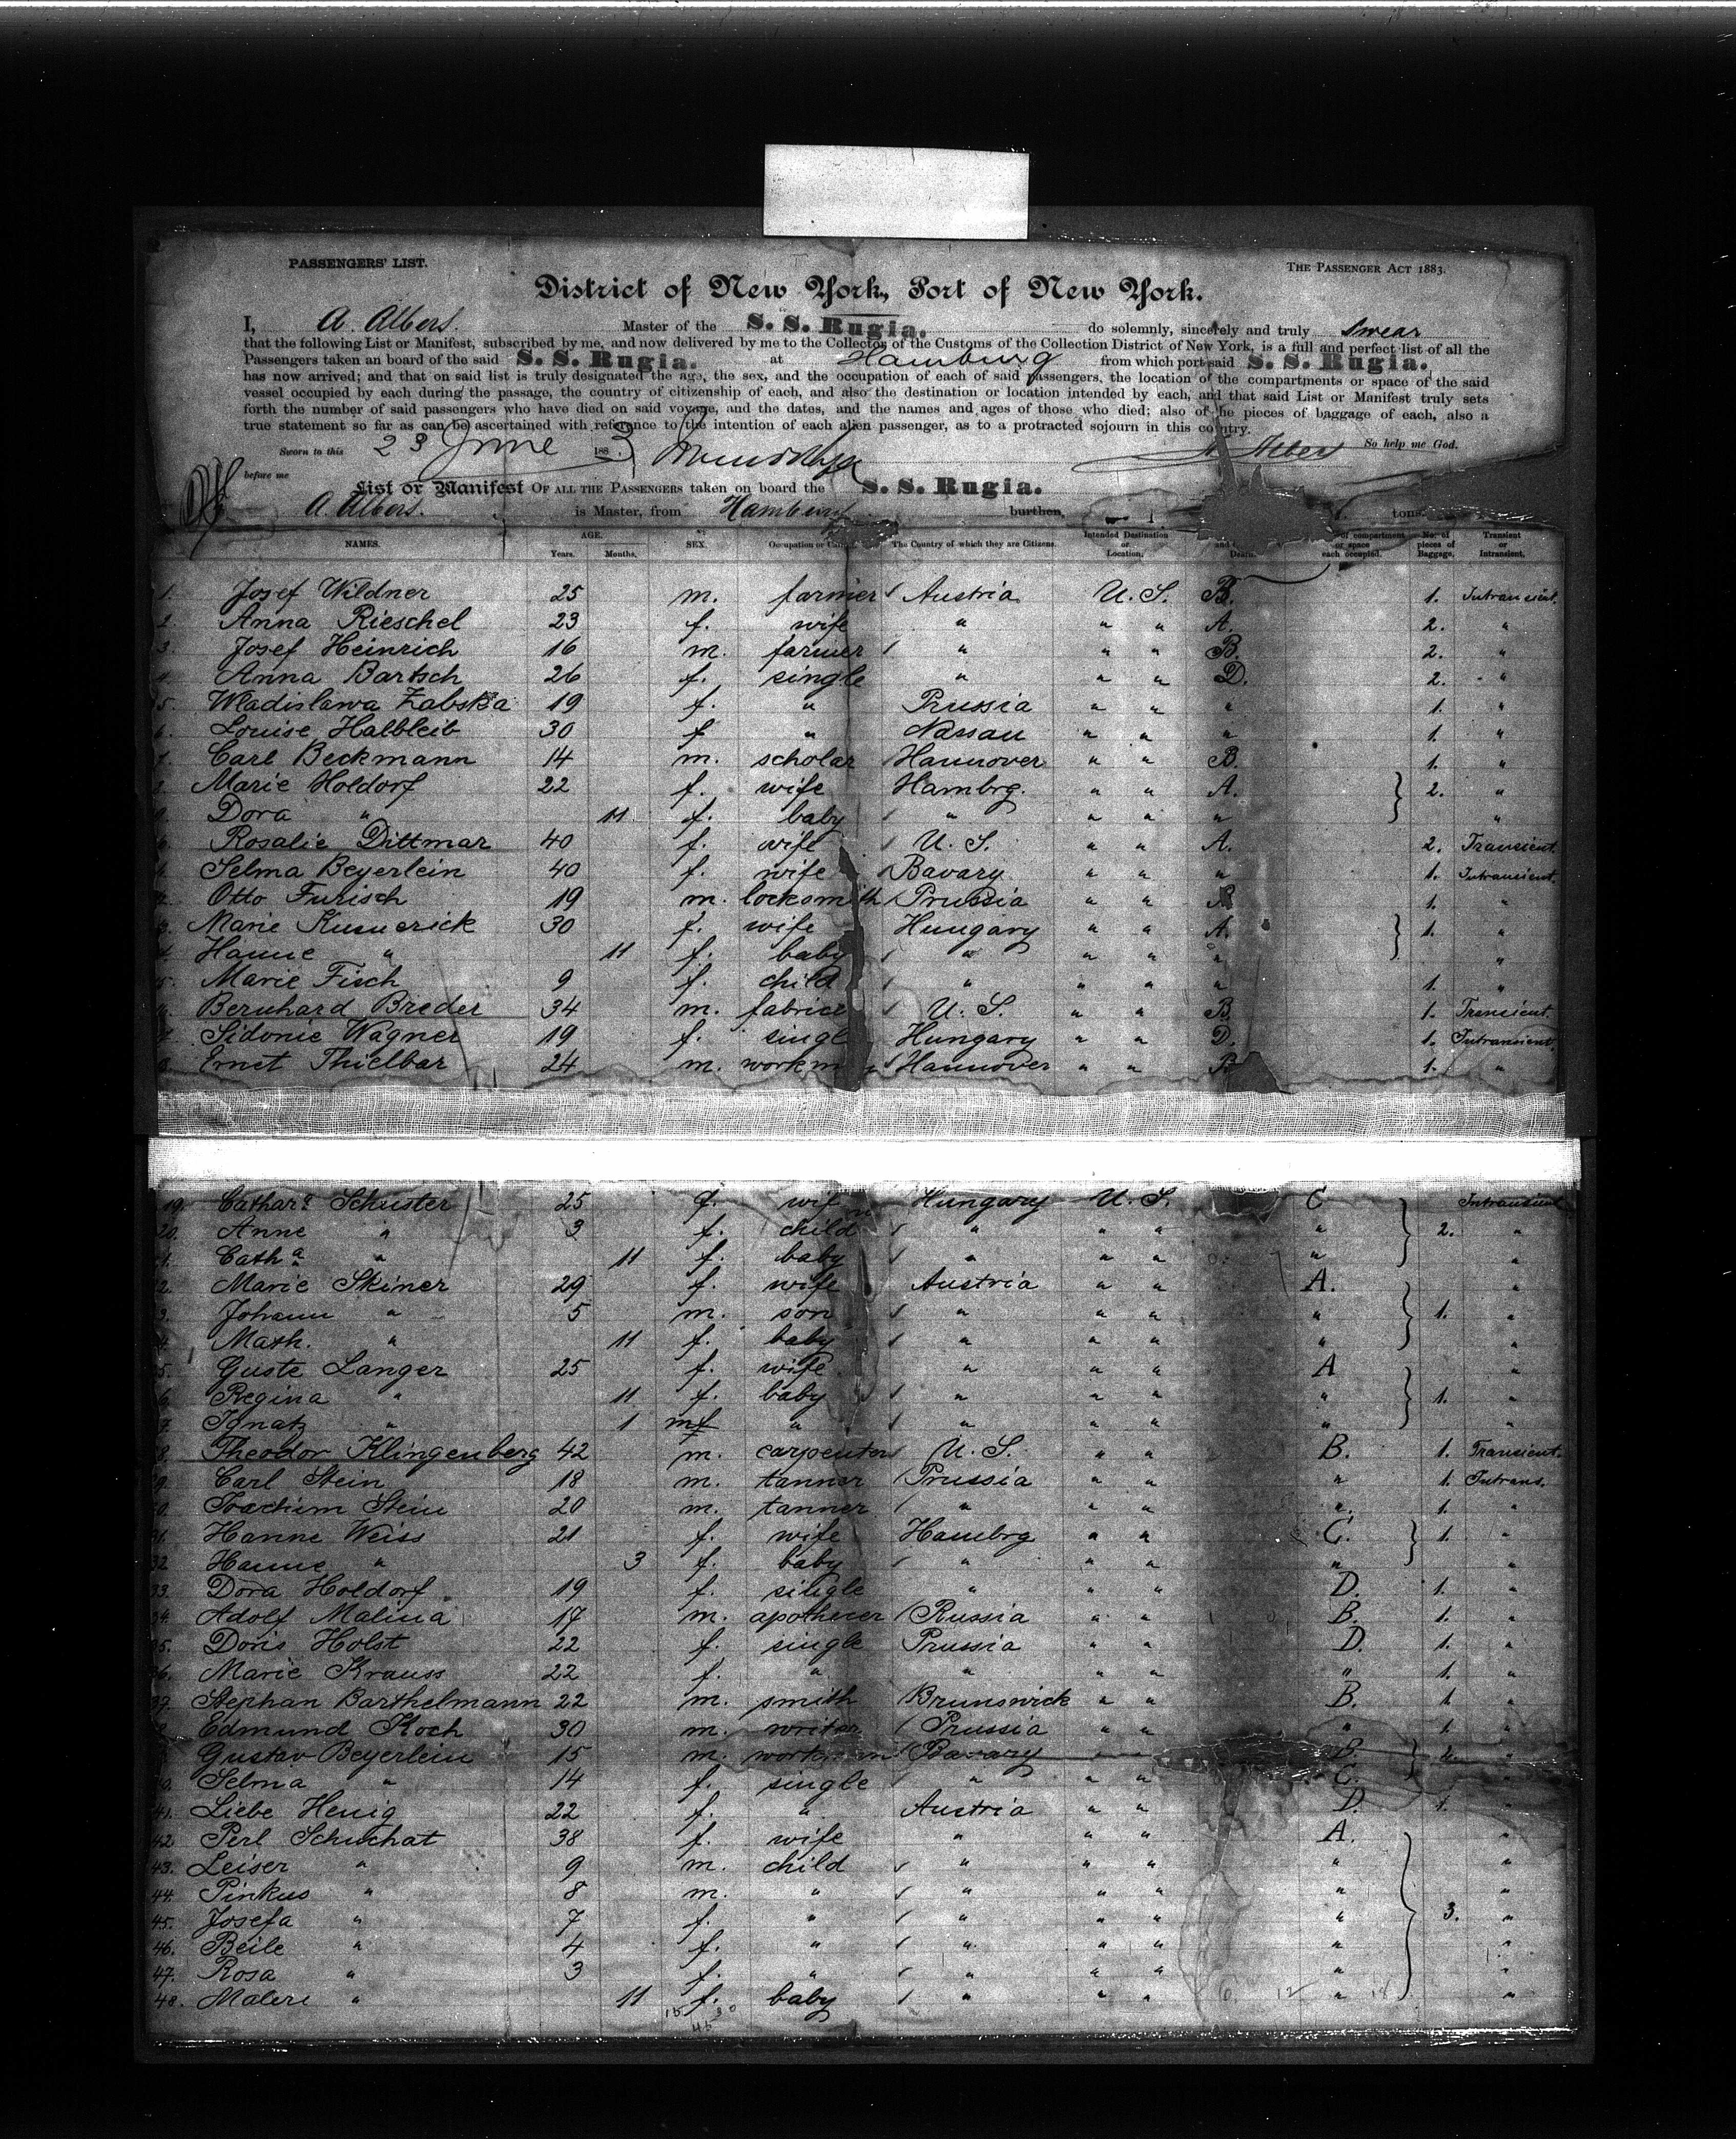 PASSENGERS' LIST.
THE PASSENGER ACT 1883.
District of New York, Port of New York.
I, A. Albers. Master of the S. S. Rugia. do solemnly, sincerely and truly swear
that the following List or Manifest, subscribed by me, and now delivered by me to the Collector of the Customs of the Collection District of New York, is a full and perfect list of all the
Passengers taken an board of the said S. S. Rugia. at Hamburg from which port said S. S. Rugia.
has now arrived; and that on said list is truly designated the age, the sex, and the occupation of each of said passengers, the location of the compartments or space of the said
vessel occupied by each during the passage, the country of citizenship of each, and also the destination or location intended by each, and that said List or Manifest truly sets
forth the number of said passengers who have died on said voyage, and the dates, and the names and ages of those who died; also of the pieces of baggage of each, also a
true statement so far as can be ascertained with reference to the intention of each alien passenger, as to a protracted sojourn in this country.
Sworn to this 23 June 1883 A. Albers So help me God.
before me
List or Manifest OF ALL THE PASSENGERS taken on board the S. S. Rugia.
A. Albers. is Master, from Hamburg burthen, tons.
NAMES. AGE. Years. Months. SEX. Occupation or The Country of which they are Citizens. Intended Destination or Location, of compartment or space each occupied. No. of pieces of Baggage, Transient or Intransient,
1. Josef Wildner 25 m. farmer Austria U. S. B. 1. Intransient.
2. Anna Rieschel 23 f. wife " " " A. 2. "
3. Josef Heinrich 16 m. farmer " " " B. 2. "
4. Anna Bartsch 26 f. single " " " D. 2. "
5. Wladislawa Zabska 19 f. " Prussia " " " 1. "
6. Louise Halbleib 30 f " Nassau " " " 1. "
7. Carl Beckmann 14 m. scholar Hannover " " B. 1. "
8. Marie Holdorf 22 f. wife Hambrg. " " A. 2. "
9. Dora " 11 f. baby " " " " "
10. Rosalie Dittmar 40 f. wife U. S. " " A. 2. Transient.
11. Selma Beyerlein 40 f. wife Bavary " " " 1. Intransient.
12. Otto Furisch 19 m. locksmith Prussia " " 1. "
13. Marie 30 f. wife Hungary " " A. 1. "
14. Hanne " 11 f. baby " " " " "
15. Marie Fisch 9 f. child " " " " 1. "
16. Bernhard Breder 34 m. U. S. " " B. 1. Transient.
17. Sidonie Wagner 19 f. single Hungary " " D. 1. Intransient.
18. Ernst Thielbar 24 m. workm Hannover " " B 1. "
19. Cathar. Schuster 25 f. wife Hungary U. S. C Intransient
20. Anne " 3 f. child " " " " 2. "
21. Catha " 11 f. baby " " " " "
22. Marie Skiner 29 f. wife Austria " " A. "
23. Johann " 5 m. son " " " " 1. "
24. Math. " 11 f. baby " " " " "
25. Guste Langer 25 f. wife " " " A "
26. Regina " 11 f. baby " " " " 1. "
27. Ignatz " 1 m " " " " " "
28. Theodor Klingenberg 42 m. carpenter U. S. " " B. 1. Transient.
29. Carl Stein 18 m. tanner Prussia " " " 1. Intrans.
30. Joachim Stein 20 m. tanner " " " " 1. "
31. Hanne Weiss 21 f. wife Hambrg " " C. 1. "
32 Hanne " 3 f. baby " " " " "
33. Dora Holdorf 19 f. single " " " D. 1. "
34. Adolf Malina 17 m. Russia " " B. 1. "
35. Doris Holst 22 f. single Prussia " " D. 1. "
36. Marie Krauss 22 f. " " " " " 1. "
37. Stephan Barthelmann 22 m. smith Brunswick " " B. 1. "
38. Edmund Koch 30 m. writer Prussia " " " 1. "
39. Gustav Beyerlein 15 m. workman Bavary " B. 2. "
40. Selma " 14 f. single " " " C. "
41. Liebe Henig 22 f. " Austria " " D. 1. "
42 Perl Schuchat 38 f. wife " " " A. "
43. Leiser " 9 m. child " " " " "
44. Pinkus " 8 m. " " " " " "
45. Josefa " 7 f. " " " " " 3. "
46. Beile " 4 f. " " " " " "
47. Rosa " 3 f. " " " " " "
48. Maleri " 11 f. baby " " " " "
15 30
45
6. 12 18